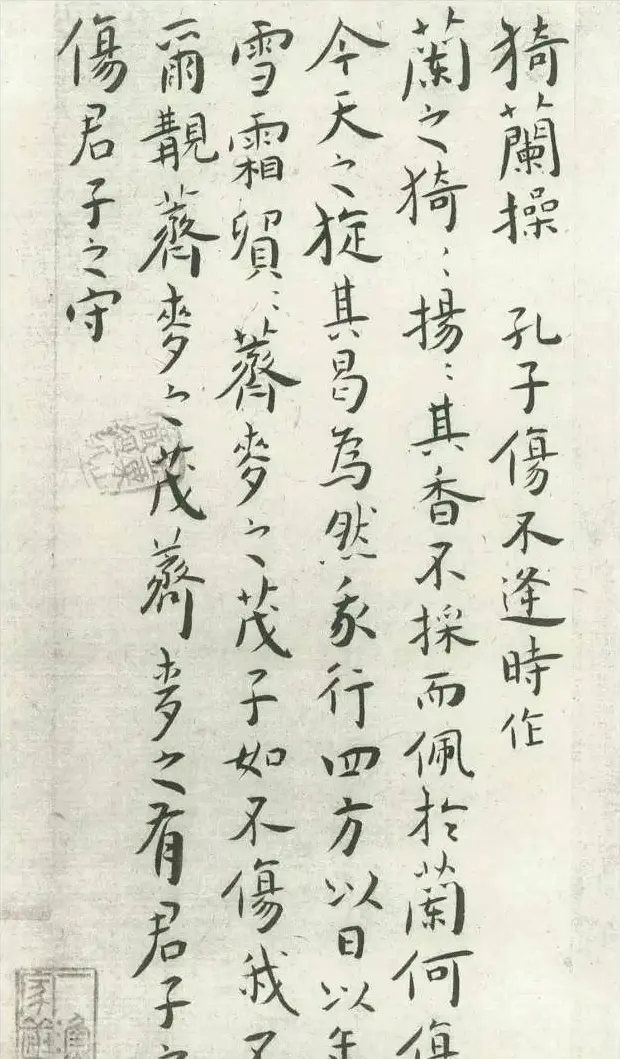 猗蘭操 孔子傷不逢時作
蘭之猗〻揚〻其香不採而佩於蘭何傷
今天之旋其曷為然我行四方以日以年
雪霜貿〻薺麥之茂子如不傷我不
爾覯薺麥之茂薺麥之有君子之
傷君子之守